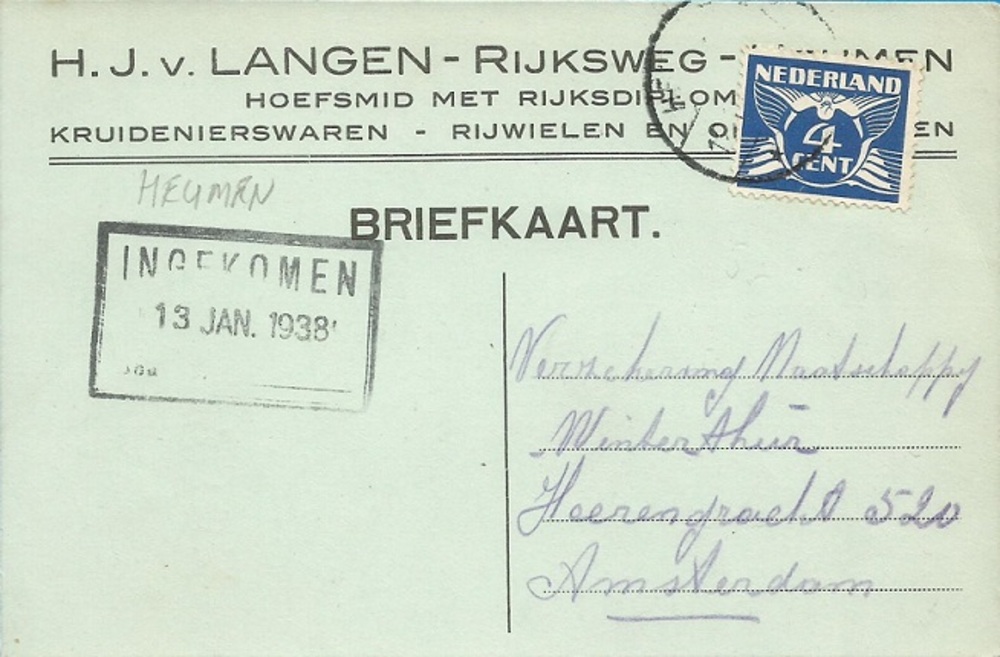 H. J. v. LANGEN - RIJKSWEG -
HOEFSMID MET RIJKSDIPLOM
KRUIDENIERSWAREN - RIJWIELEN EN
NEDERLAND
4
CENT
HEUMEN
BRIEFKAART.
INGEKOMEN
13 JAN. 1938
Verzekering Maatschappy
Winterthür
Heerengracht 520
Amsterdam